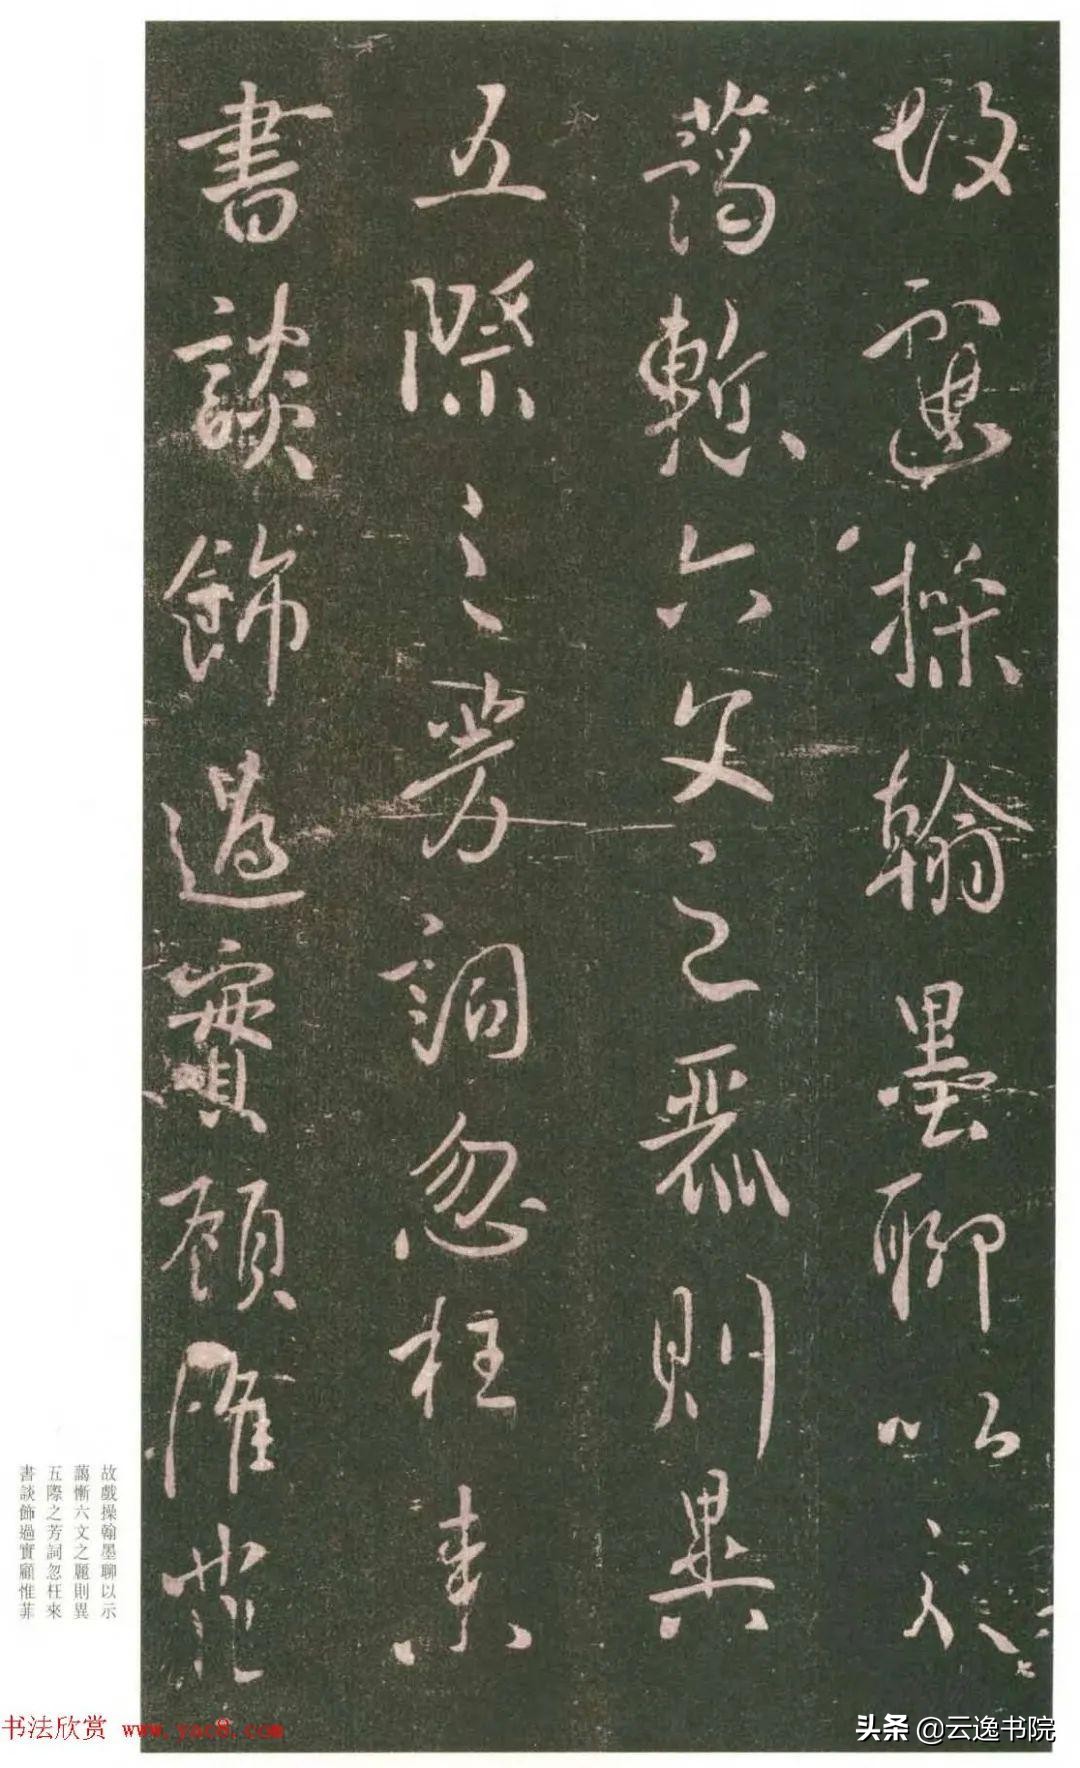 故戲操翰墨聊以示
藹慙六文之麗則異
五際之芳詞忽枉來
書談飾過實顧惟菲
故戲操翰墨聊以示
藹慚六文之麗則異
五際之芳詞忽枉來
書談飾過實顧惟菲
书法欣赏 www.yac8.com
头条 @云逸书院